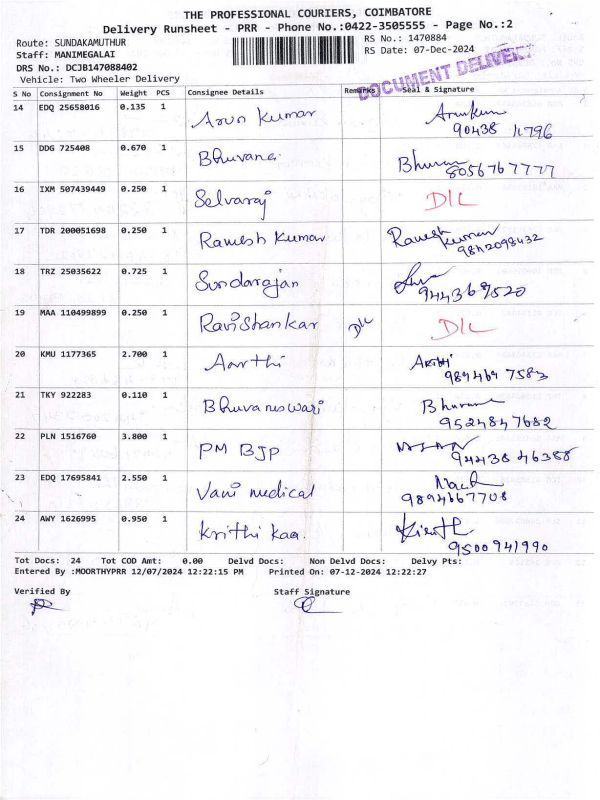 THE PROFESSIONAL COURIERS, COIMBATORE
Delivery Runsheet - PRR - Phone No.:0422-3505555 - Page No.:2
Route: SUNDAKAMUTHUR
Staff: MANIMEGALAI
DRS No.: DCJB147088402
Vehicle: Two Wheeler Delivery
RS No.: 1470884
RS Date: 07-Dec-2024
DOCUMENT DELIVERY
S No Consignment No Weight PCS Consignee Details Remarks Seal & Signature
14 EDQ 25658016 0.135 1 Arun Kumar Arunkum
90438 11796
15 DDG 725408 0.670 1 Bhuvana Bhuvan
8056767777
16 IXM 507439449 0.250 1 Selvaraj D/L
17 TDR 200051698 0.250 1 Ramesh Kumar Ramesh Kumar
9842098432
18 TRZ 25035622 0.725 1 Sundarajan
9443679520
19 MAA 110499899 0.250 1 Ravi Shankar D/L D/L
20 KMU 1177365 2.700 1 Aarthi Arthi
989469 7583
21 TKY 922283 0.110 1 Bhuvaneswari Bhuvan
9524847682
22 PLN 1516760 3.800 1 PM BJP
94438 46388
23 EDQ 17695841 2.550 1 Vani medical
9894667708
24 AWY 1626995 0.950 1 Krithi Kaa.
9500941990
Tot Docs: 24 Tot COD Amt: 0.00 Delvd Docs: Non Delvd Docs: Delvy Pts:
Entered By :MOORTHYPRR 12/07/2024 12:22:15 PM Printed On: 07-12-2024 12:22:27
Verified By Staff Signature